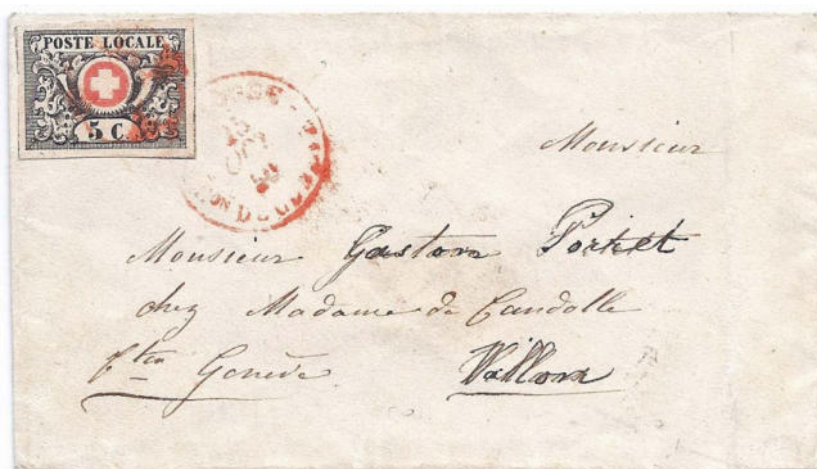 POSTE LOCALE
5 C.
Monsieur
Monsieur Gaston
chez Madame de Candolle
Genève Vallon